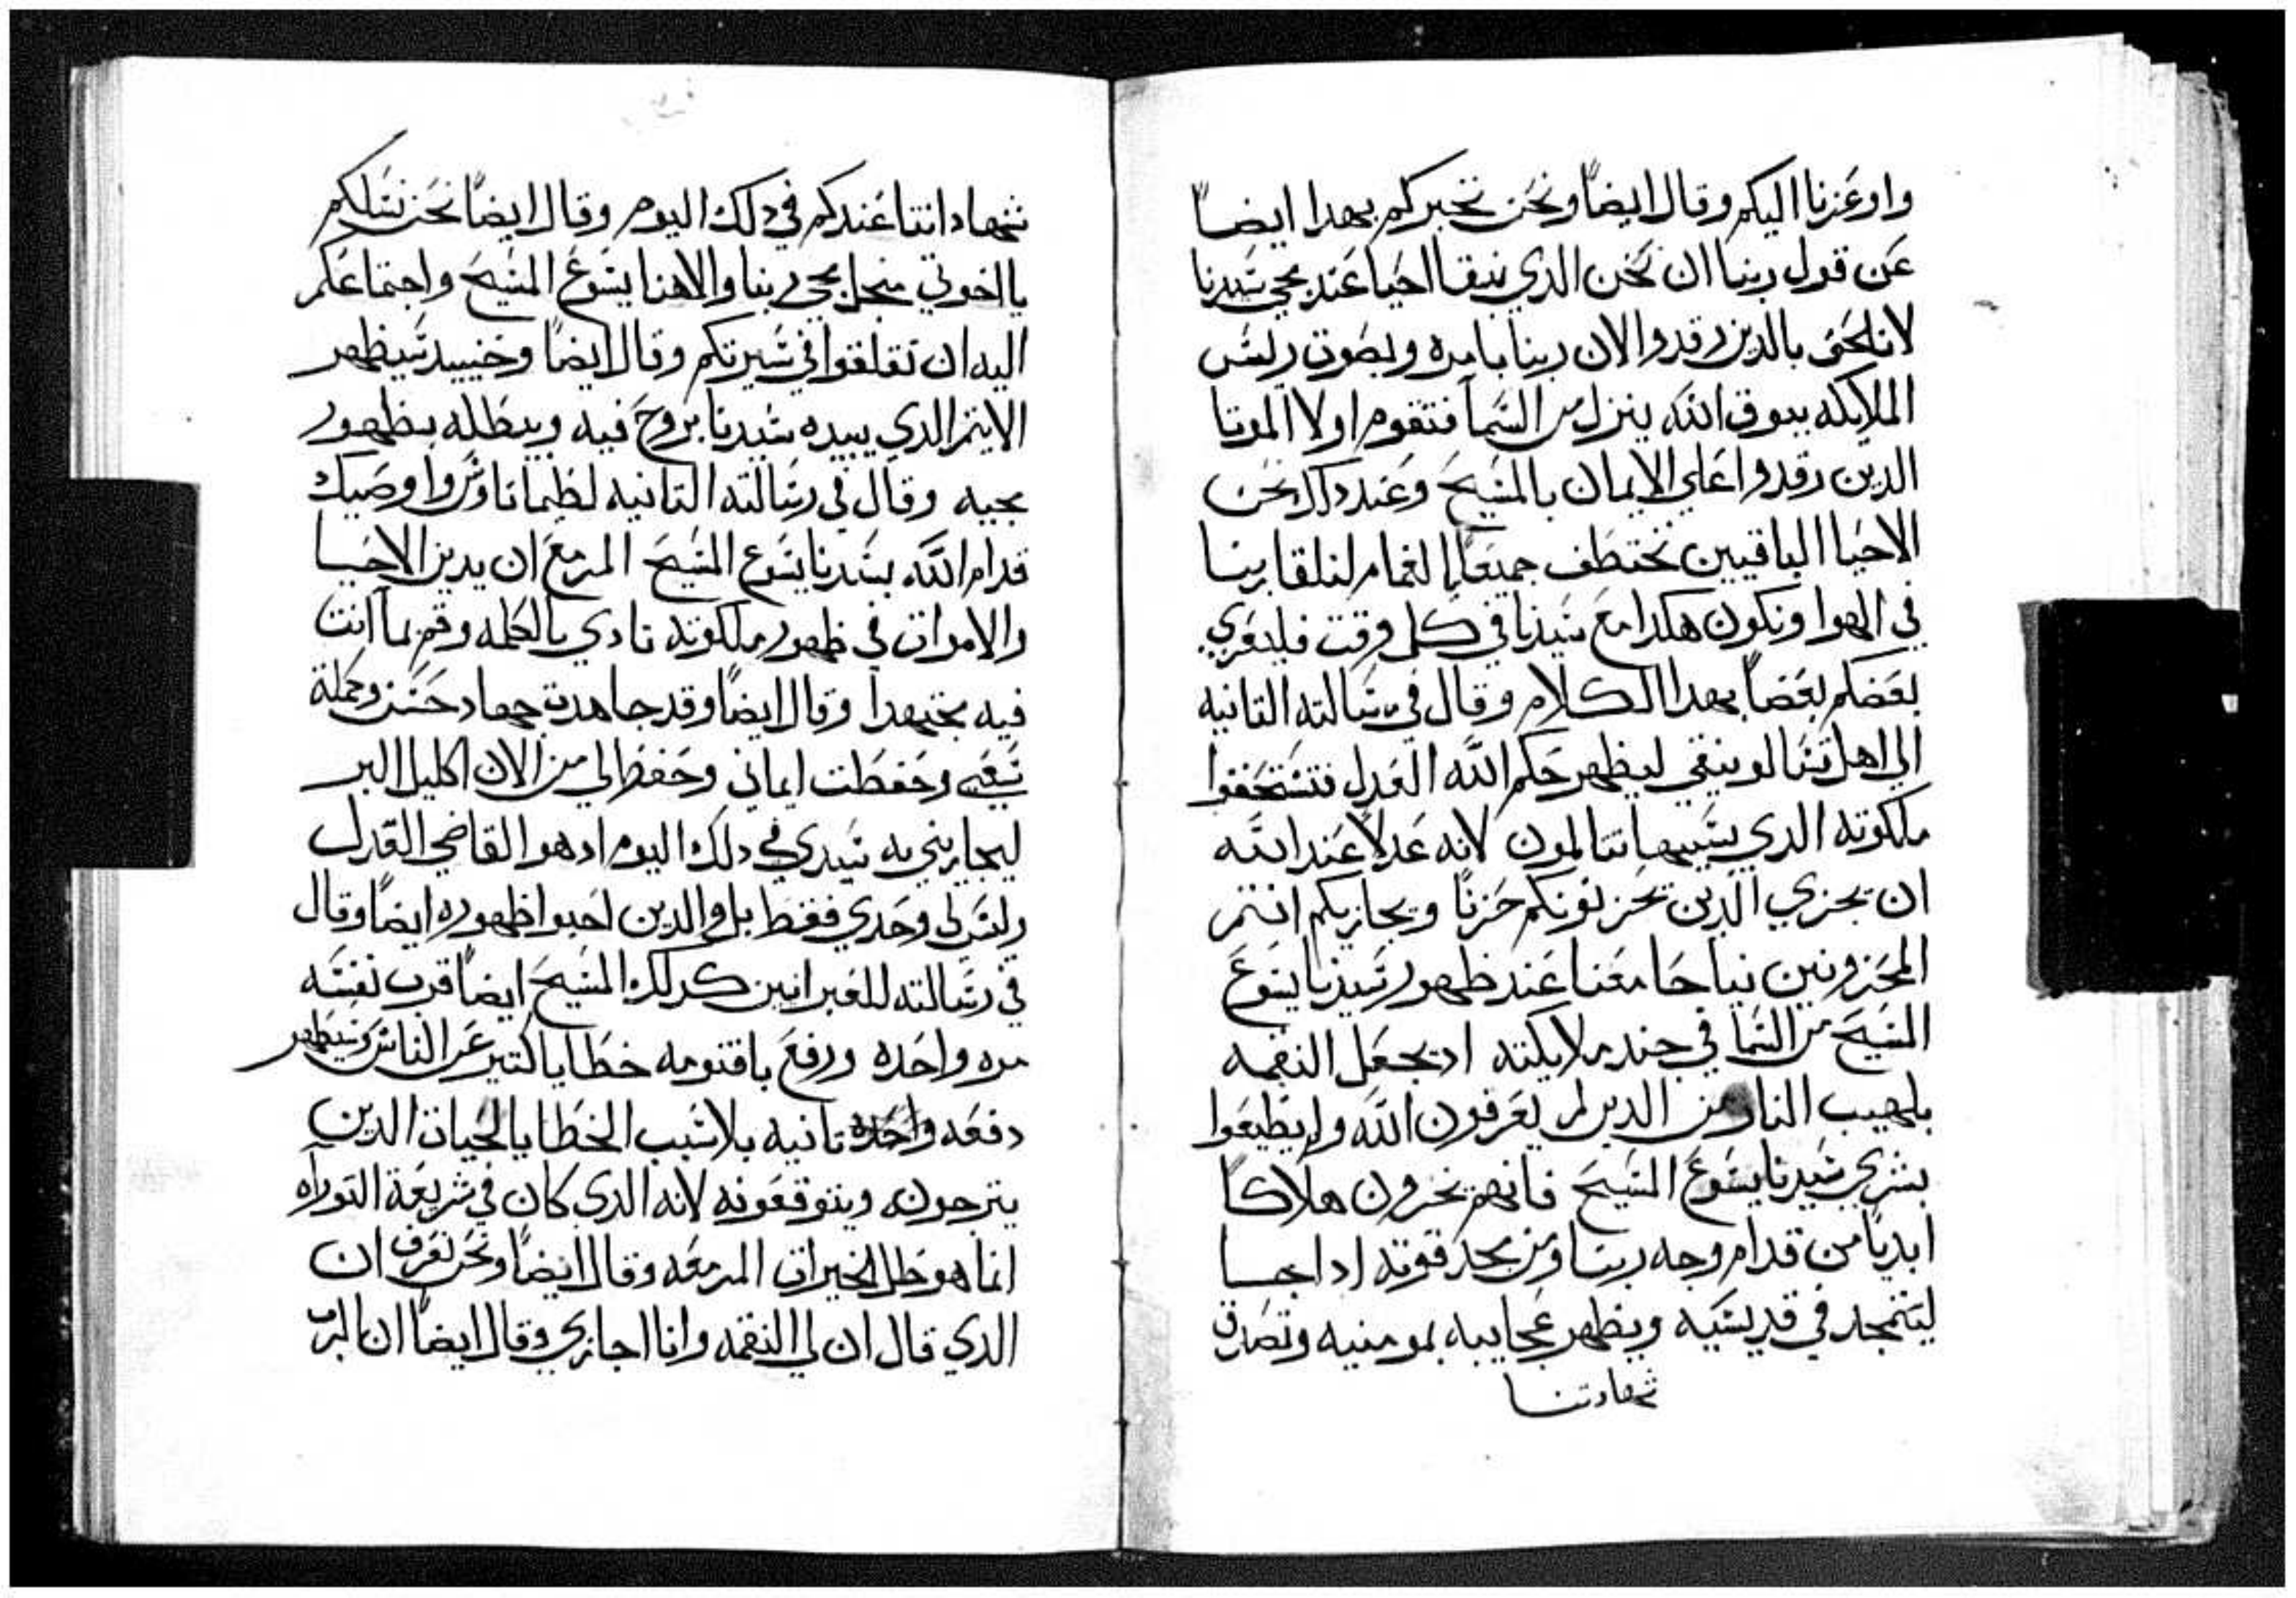 واوعزنا اليكم وقال ايضاً ونحن نخبركم بهدا ايضاً
عن قول ربنا ان نحن الدي نبقا احيا عند مجي سيدنا
لا نلحق بالدين رقدوا لان ربنا بامره وبصوت ريس
الملايكه ببوق الله ينزل من السما فتقوم اولا الموتا
الدين رقدوا علي الايمان بالمسيح وعند داك نحن
الاحيا الباقيين نختطف جميعاً الغمام لنلقا ربنا
في الهوا ونكون هكدا مع سيدنا في كل وقت فليعزي
بعضكم بعضاً بهدا الكلام وقال في رسالته التانيه
الي اهل تسالونيقي ليظهر حكم الله العدل فتستحقوا
ملكوته الدي بسببها تتالمون لانه عدلاً عند الله
ان يجزي الدين يحزنونكم حزناً ويجازيكم انتم
المحزونين نياحا معنا عند ظهور سيدنا يسوع
المسيح من السما في جند ملايكته اد يجعل النقمه
بلهيب النار من الدين لم يعرفون الله ولم يطيعوا
بشري سيدنا يسوع المسيح فانهم يخزون هلاكاً
ابدياً من قدام وجه ربنا ومن مجد قوته ادا جا
ليتمجد في قديسيه ويظهر عجايبه بمومنيه وتصدق
شهادتنا
شهادتنا عندكم في دلك اليوم وقال ايضاً نحن نسلكم
يا اخوتي منجل مجي ربنا والاهنا يسوع المسيح واجتماعكم
اليه ان تقلقوا في سيرتكم وقال ايضاً وحنييد سيظهر
الايتم الدي يبيده سيدنا بروح فيه ويبطله بظهور
مجيه وقال في رسالته التانيه لطيماتاوس وا وصيك
قدام الله بسيدنا يسوع المسيح المزمع ان يدين الاحيا
والاموات في ظهور ملكوته نادي بالكلمه وقم بما انت
فيه مجتهداً وقال ايضاً وقد جاهدت جهاد حسن وكملة
سعيي وحفظت ايماني وحفظ لي من الان اكليل البر
ليجازيني به سيدي في دلك اليوم اد هو القاضي العدل
وليس لي وحدي فقط بل والدين احبوا ظهوره ايضاً وقال
في رسالته للعبرانيين كدلك المسيح ايضاً قرب نفسه
مره واحده ورفع باقنومه خطايا كتير عن الناس وسيظهر
دفعه واحده تانيه بلا سبب الخطايا لحيات الدين
يترجونه ويتوقعونه لانه الدي كان في شريعة التوراه
انما هو ظل الخيرات المزمعه وقال ايضاً ونحن نعرف ان
الدي قال ان لي النقمه وانا اجازي وقال ايضاً ان الرب